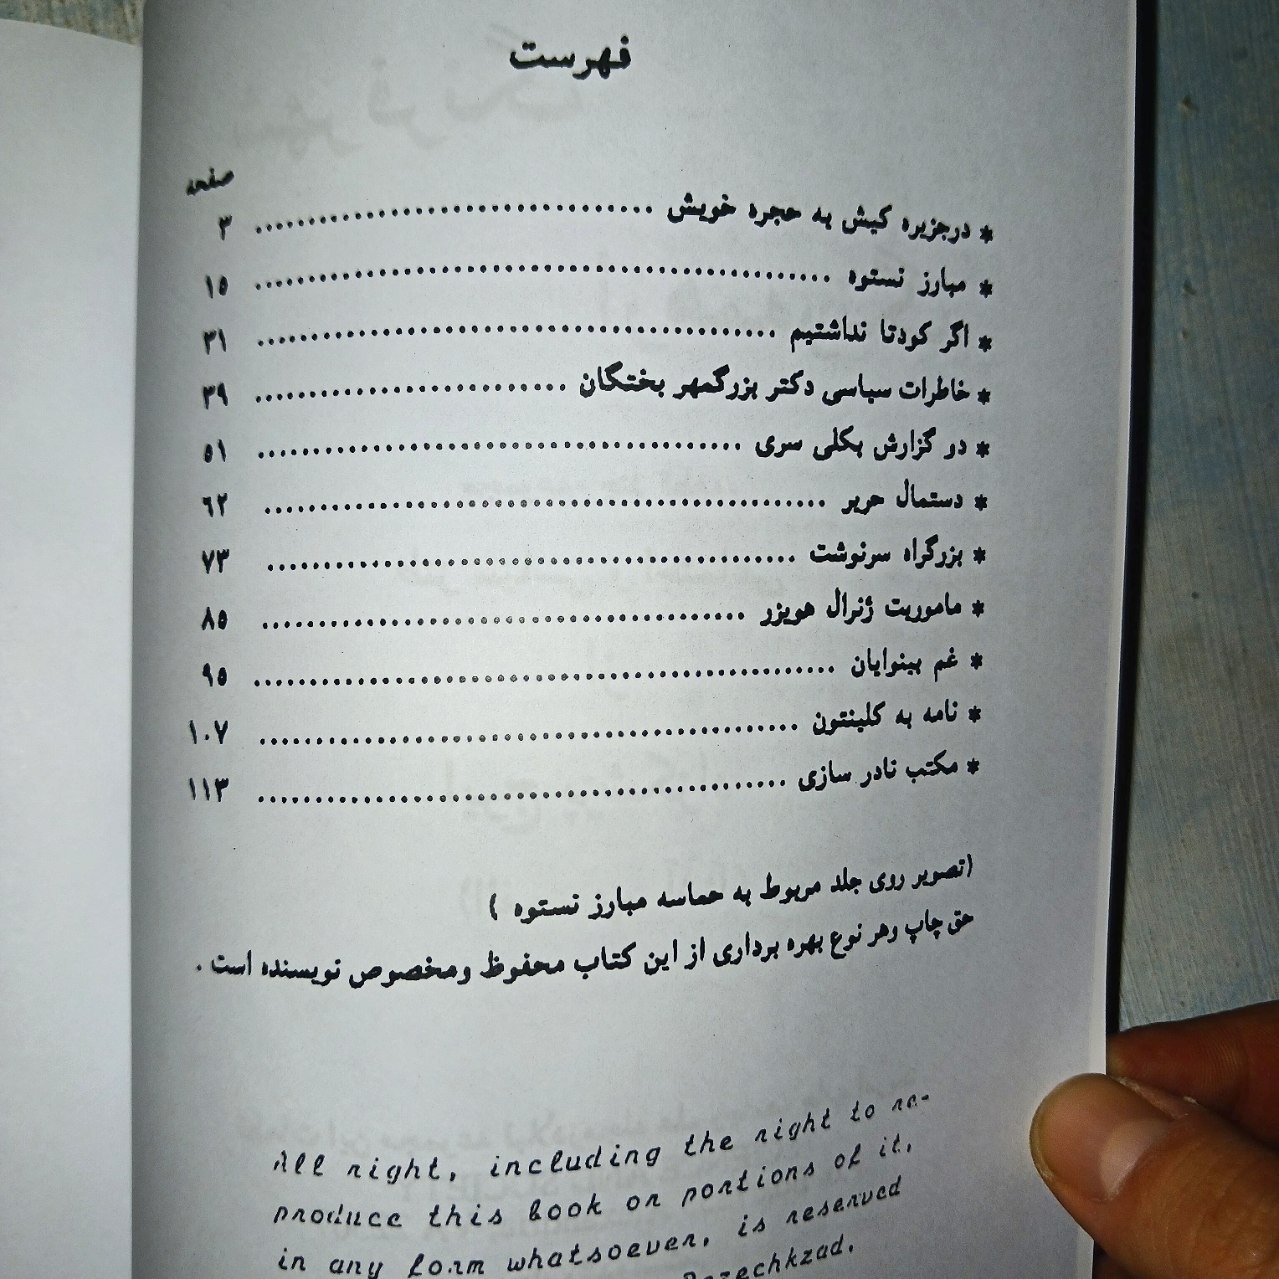 فهرست
صفحه
* درجزیره کیش به حجره خویش ........ ۳
* مبارز نستوه ........ ۱۵
* اگر کودتا نداشتیم ........ ۳۱
* خاطرات سیاسی دکتر بزرگمهر بختگان ........ ۳۹
* دو گزارش بکلی سری ........ ۵۱
* دستمال حریر ........ ۶۲
* بزرگراه سرنوشت ........ ۷۳
* ماموریت ژنرال هویزر ........ ۸۵
* غم بینوایان ........ ۹۵
* نامه به کلینتون ........ ۱۰۷
* مکتب نادر سازی ........ ۱۱۳
(تصویر روی جلد مربوط به حماسه مبارز نستوه )
حق چاپ وهر نوع بهره برداری از این کتاب محفوظ ومخصوص نویسنده است .
All right, including the right to re-
produce this book or portions of it,
in any form whatsoever, is reserved
Pezechkzad.